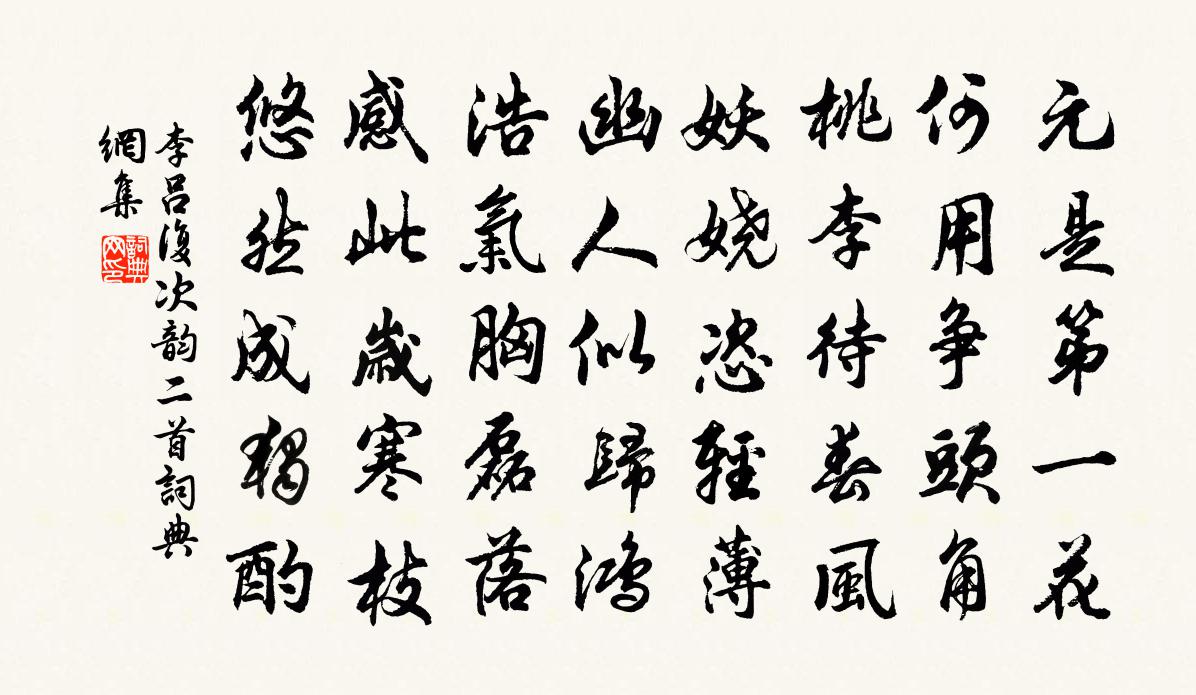 元是第一花
何用爭頭角
桃李待春風
妖嬈恣輕薄
幽人似歸鴻
浩氣胸磊落
感此歲寒枝
悠然成獨酌
李呂復次韵二首詞典
網集
詞典
网印